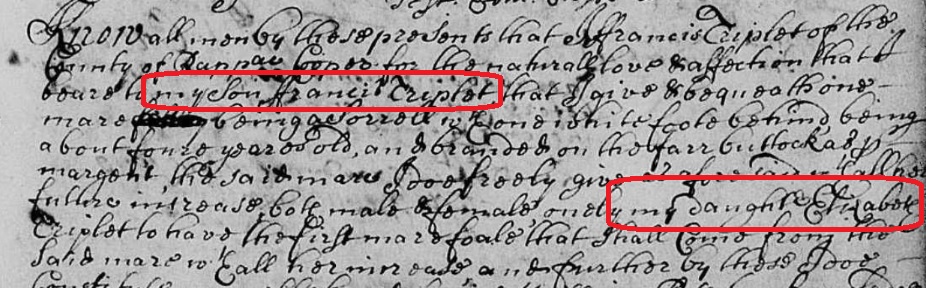 Know all men by these presents that I ffrancis Triplet of the
County of Rappac Cooper for the naturall love & affection that I
beare to my Son ffrancis Triplet that I give & bequeath one
mare being a Sorrell wth one white foote behind being
about foure yeares old, and branded on the farr buttock as p
margent, the said mare I doe freely give as aforesaid wth all her
future increase both male & female, onely my daughtr Elizabeth
Triplet to have the first mare foale that shall Come from the
said mare wth all her increase and further by these I doe